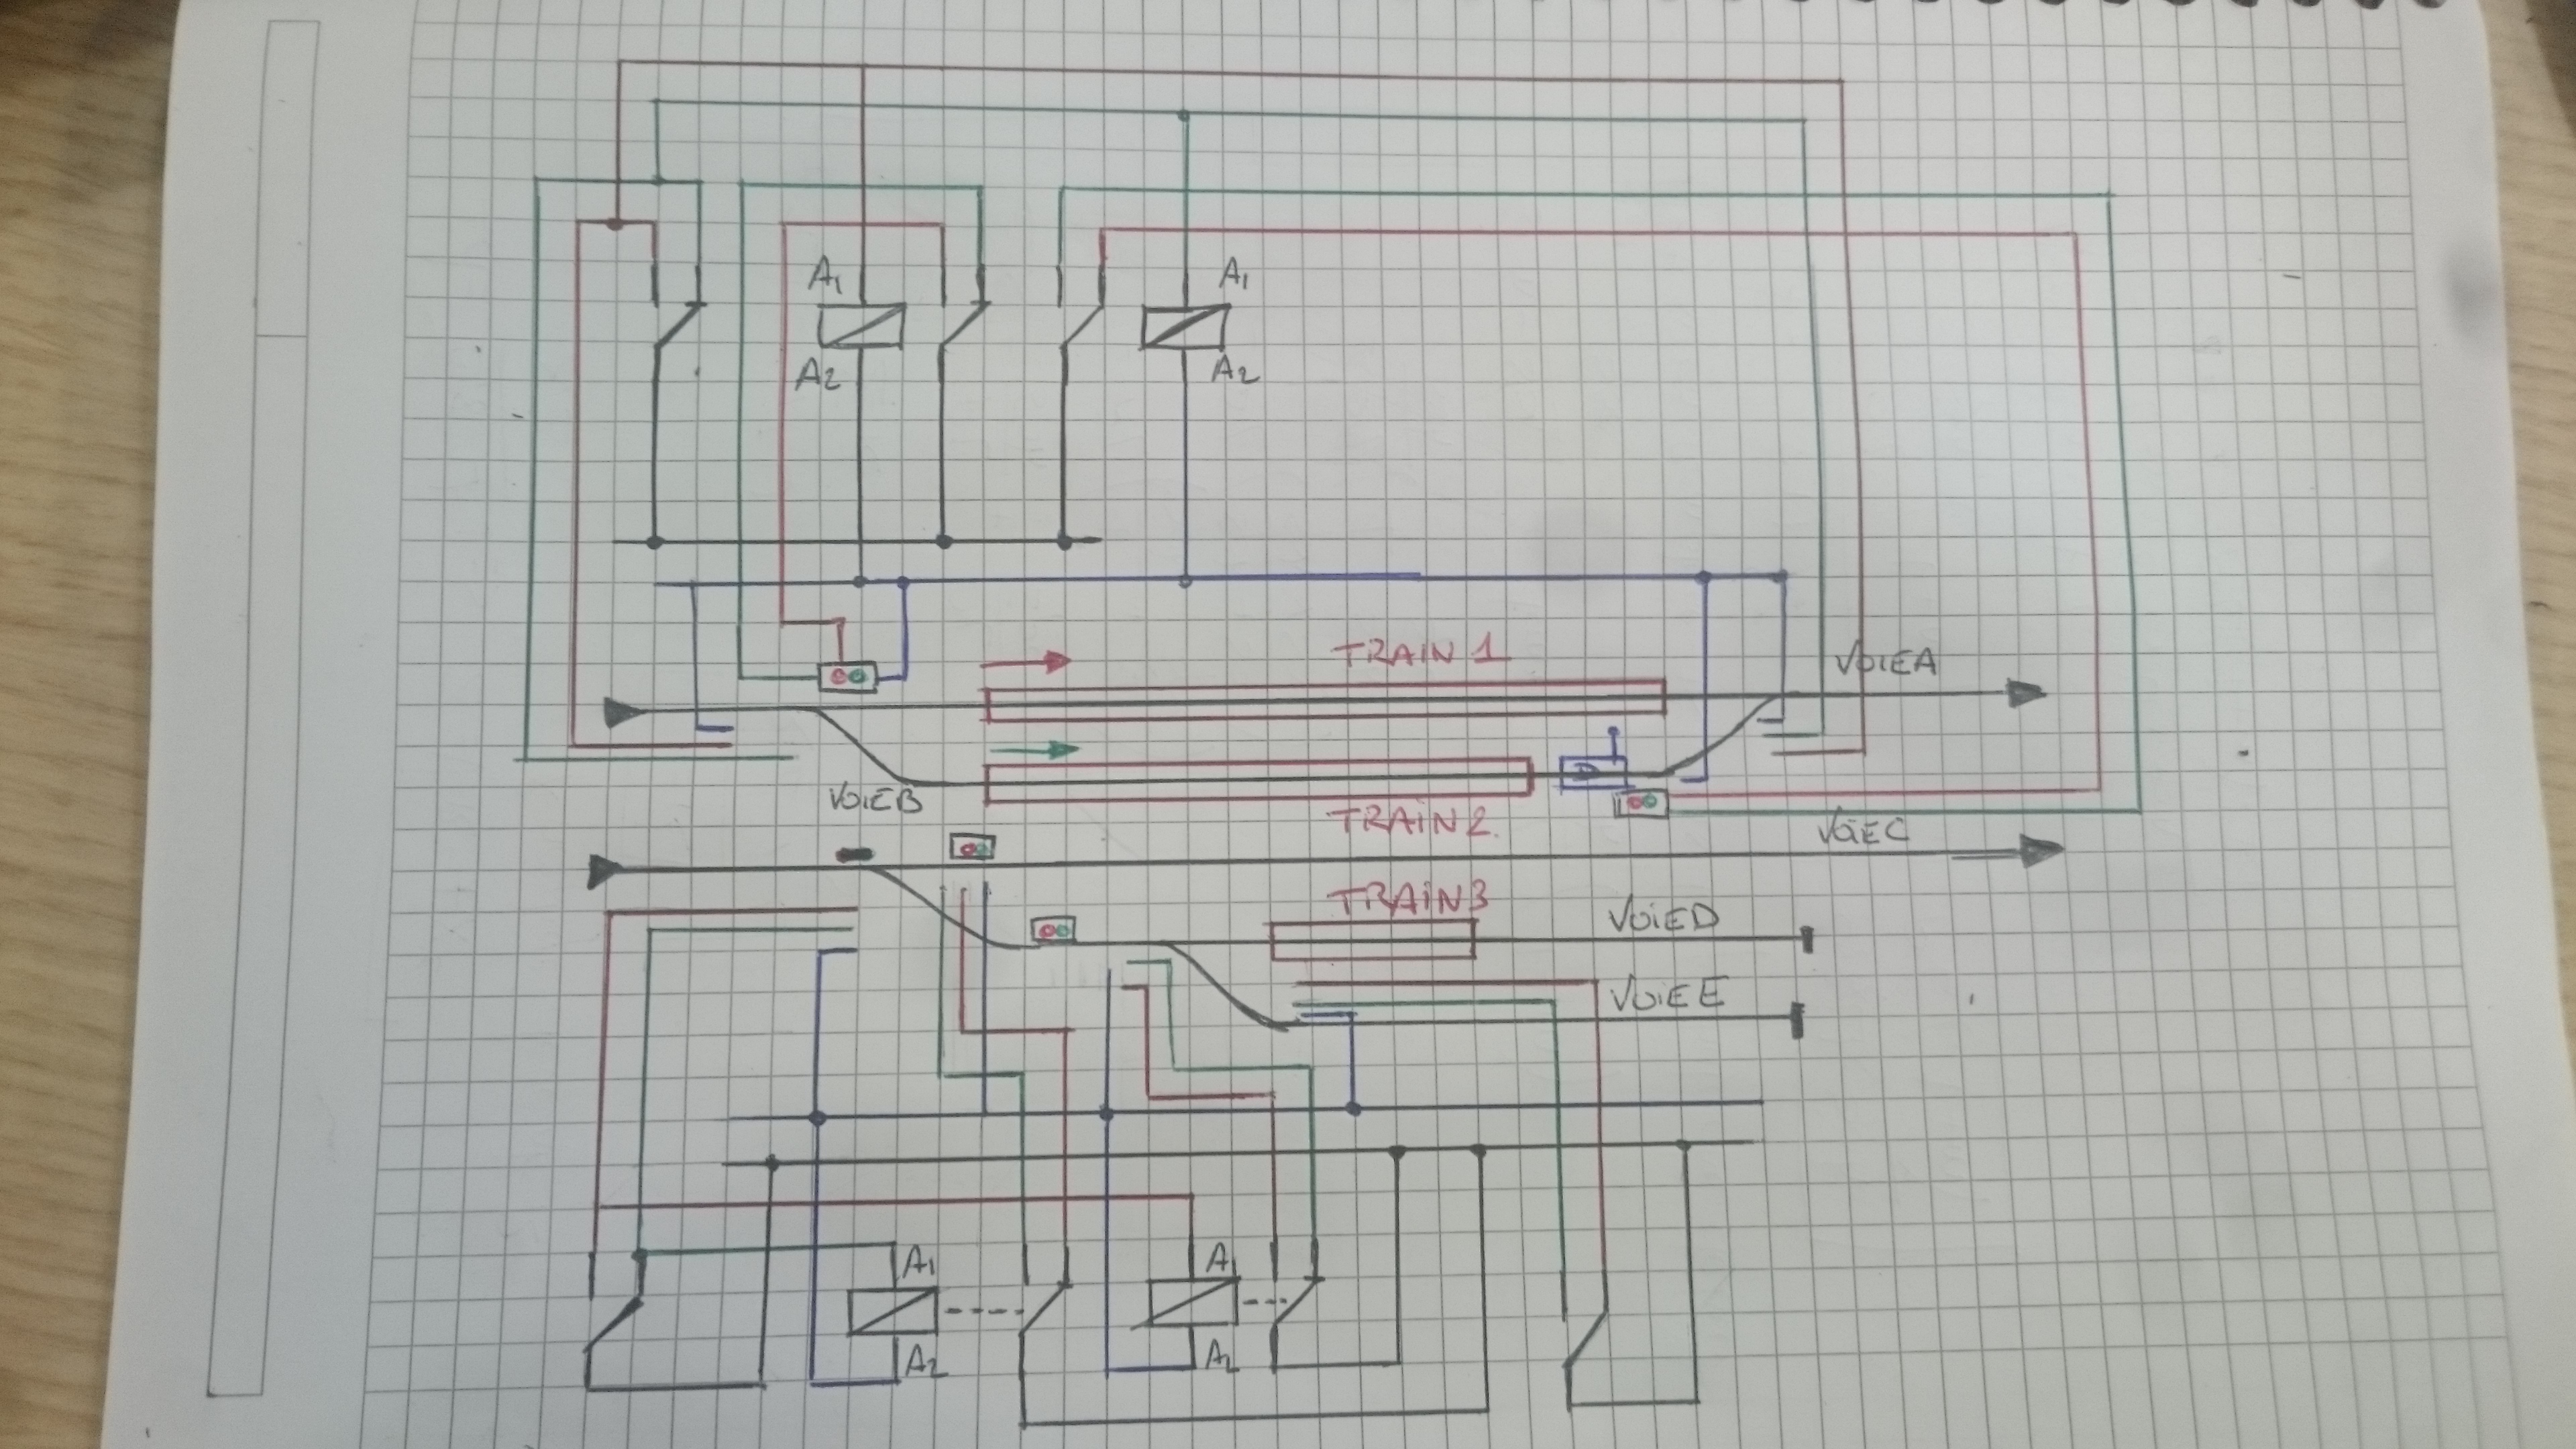 A1
A1
A2
A2
TRAIN 1
VOIEA
VOIEB
TRAIN 2.
VOIEC
TRAIN3
VOIED
VOIEE
A1
A1
A2
A2